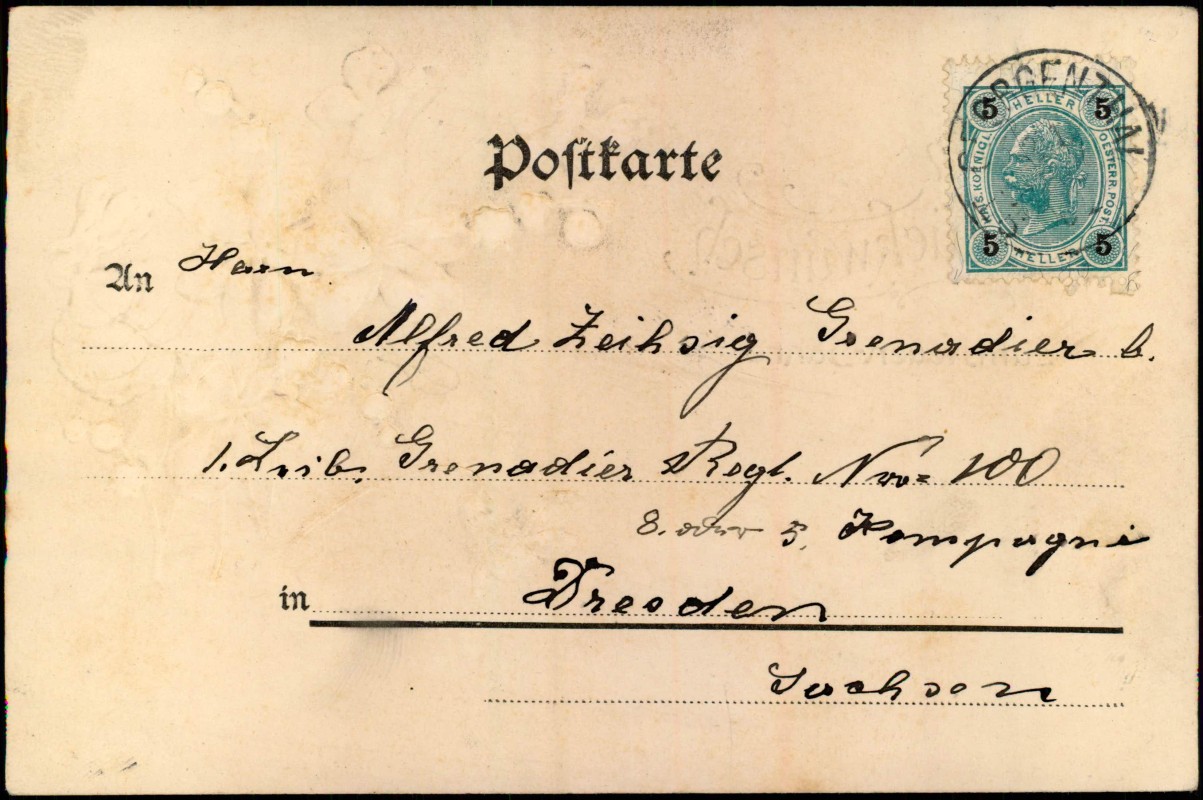 Postkarte
5 HELLER 5
KAIS. KOENIGL. OESTERR. POST.
5 HELLER 5
GEORGENTHAL
An Herrn
Alfred Zeihsig Grenadier b.
1. Leib. Grenadier Regt. Nro= 100
8. oder 5. Kompagnie
in Dresden
Sachsen